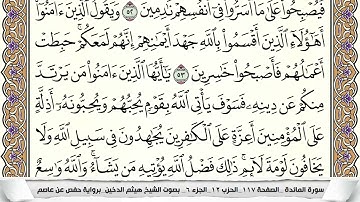 فَيُصْبِحُوا۟ عَلَىٰ مَآ أَسَرُّوا۟ فِىٓ أَنفُسِهِمْ نَـٰدِمِينَ ٥٢ وَيَقُولُ ٱلَّذِينَ ءَامَنُوٓا۟
أَهَـٰٓؤُلَآءِ ٱلَّذِينَ أَقْسَمُوا۟ بِٱللَّهِ جَهْدَ أَيْمَـٰنِهِمْ إِنَّهُمْ لَمَعَكُمْ ۚ حَبِطَتْ
أَعْمَـٰلُهُمْ فَأَصْبَحُوا۟ خَـٰسِرِينَ ٥٣ يَـٰٓأَيُّهَا ٱلَّذِينَ ءَامَنُوا۟ مَن يَرْتَدَّ
مِنكُمْ عَن دِينِهِۦ فَسَوْفَ يَأْتِى ٱللَّهُ بِقَوْمٍ يُحِبُّهُمْ وَيُحِبُّونَهُۥٓ أَذِلَّةٍ
عَلَى ٱلْمُؤْمِنِينَ أَعِزَّةٍ عَلَى ٱلْكَـٰفِرِينَ يُجَـٰهِدُونَ فِى سَبِيلِ ٱللَّهِ وَلَا
يَخَافُونَ لَوْمَةَ لَآئِمٍ ۚ ذَٰلِكَ فَضْلُ ٱللَّهِ يُؤْتِيهِ مَن يَشَآءُ ۚ وَٱللَّهُ وَٰسِعٌ
سورة المائدة _ الصفحة ١١٧ _ الحزب ١٢ _ الجزء ٦ _ بصوت الشيخ هيثم الدخين _ برواية حفص عن عاصم